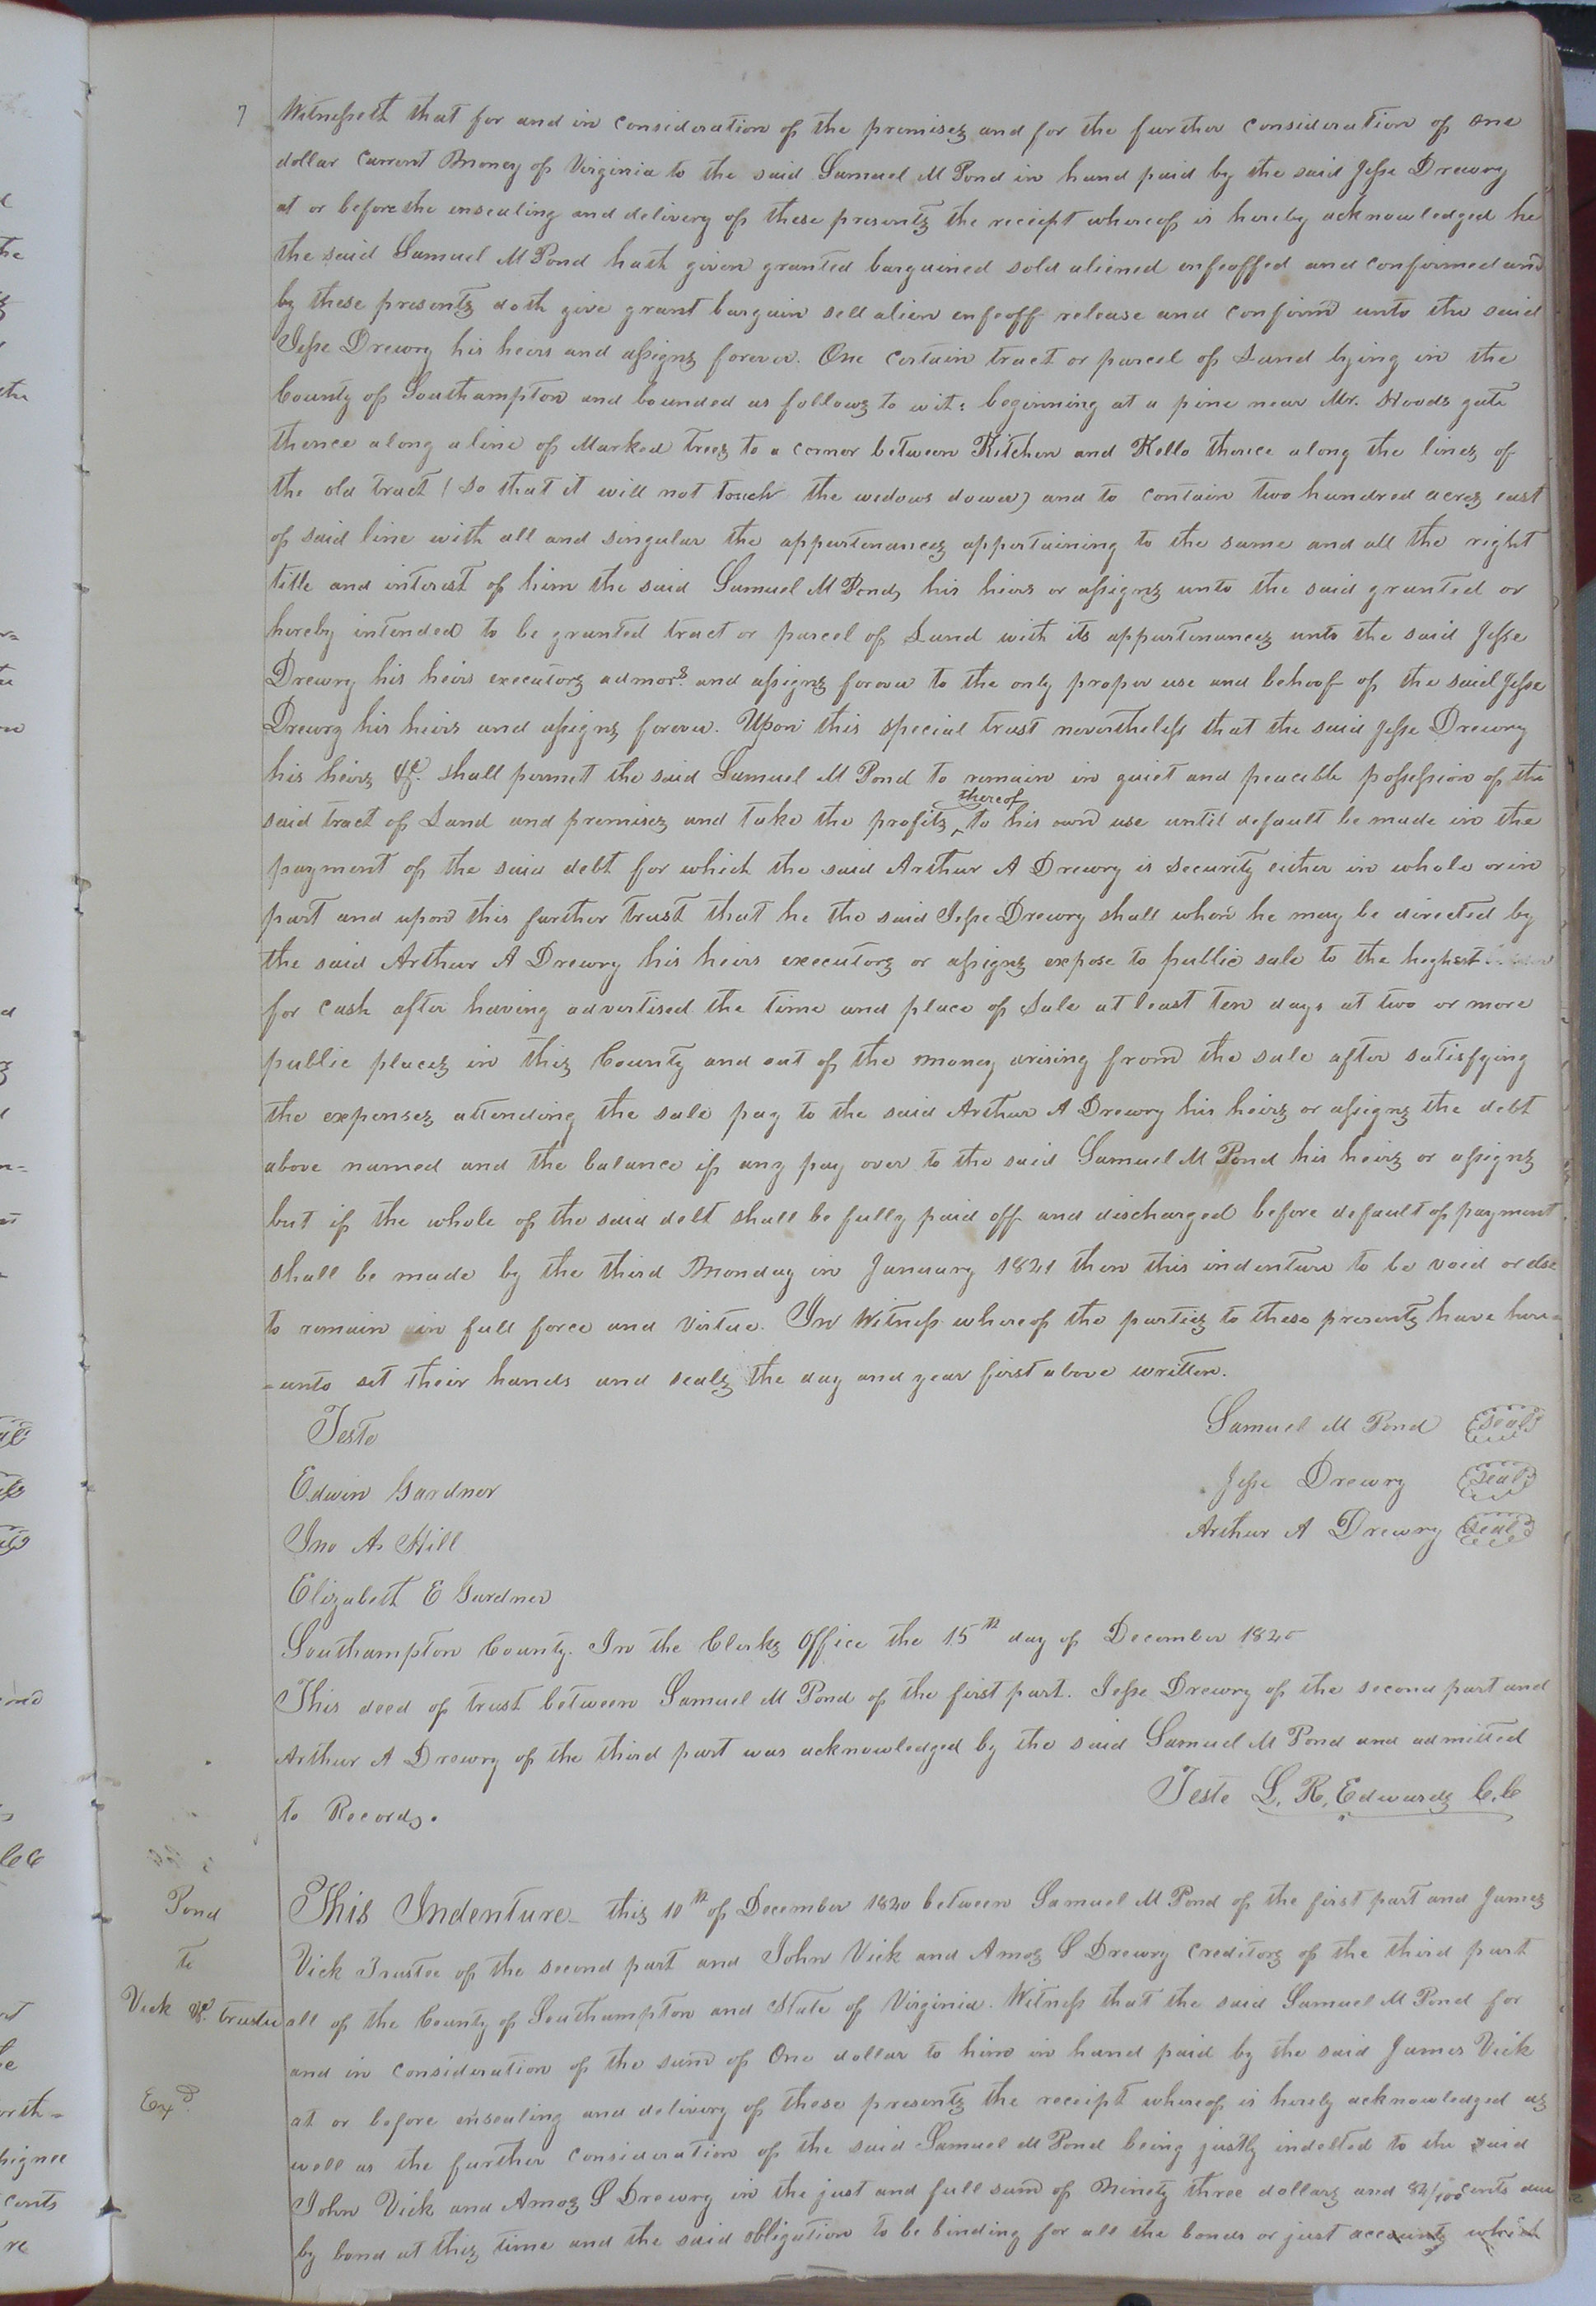 7 Witnesseth that for and in consideration of the premises and for the further consideration of one
dollar current Money of Virginia to the said Samuel M Pond in hand paid by the said Jesse Drewry
at or before the ensealing and delivery of these presents the receipt whereof is hereby acknowledged he
the said Samuel M Pond hath given granted bargained sold aliened enfeoffed and confirmed and
by these presents doth give grant bargain sell alien enfeoff release and confirm unto the said
Jesse Drewry his heirs and assigns forever. One certain tract or parcel of Land lying in the
County of Southampton and bounded as follows to wit: beginning at a pine near Mr. Hoods gate
thence along a line of Marked trees to a corner between Kitchen and Kello thence along the lines of
the old tract (so that it will not touch the widows dower) and to contain two hundred acres east
of said line with all and singular the appurtenances appertaining to the same and all the right
title and interest of him the said Samuel M Pond, his heirs or assigns unto the said granted or
hereby intended to be granted tract or parcel of Land with its appurtenances unto the said Jesse
Drewry his heirs executors admors. and assigns forever to the only proper use and behoof of the said Jesse
Drewry his heirs and assigns forever. Upon this special trust nevertheless that the said Jesse Drewry
his heirs &c. shall permet the said Samuel M Pond to remain in quiet and peaceble possession of the
said tract of Land and premises and take the profits thereof to his own use until default be made in the
payment of the said debt for which the said Arthur A Drewry is security either in whole or in
part and upon this further trust that he the said Jesse Drewry shall when he may be directed by
the said Arthur A Drewry his heirs executors or assigns expose to public sale to the heghest
for cash after having advertised the time and place of Sale at least ten days at two or more
public places in this County and out of the money arising from the sale after satisfying
the expenses attending the sale pay to the said Arthur A Drewry his heirs or assigns the debt
above named and the balance if any pay over to the said Samuel M Pond his heirs or assigns
but if the whole of the said debt shall be fully paid off and discharged before default of payment
shall be made by the third Monday in January 1821 then this indenture to be void or else
to remain in full force and Virtue. In Witness whereof the parties to these presents have here=
=unto set their hands and seals the day and year first above written.
Teste Samuel M Pond (seal)
Edwin Gardner Jesse Drewry (seal)
Jno A. Hill Arthur A Drewry (seal)
Elizabeth E Gardner
Southampton County. In the Clerks Office the 15th day of December 1820
This deed of trust between Samuel M Pond of the first part. Jesse Drewry of the second part and
Arthur A Drewry of the third part was acknowledged by the said Samuel M Pond and admitted
to Record.
Teste L. R. Edwards C.C
Pond
to
Vick &c. trustee
Exd.
This Indenture this 10th of December 1820 between Samuel M Pond of the first part and James
Vick Trustee of the second part and John Vick and Amos S Drewry creditors of the third part
all of the County of Southampton and State of Virginia. Witness that the said Samuel M Pond for
and in consideration of the sum of One dollar to him in hand paid by the said James Vick
at or before ensealing and delivery of these presents the receipt whereof is hereby acknowledged as
well as the further consideration of the said Samuel M Pond being justly indebted to the said
John Vick and Amos S Drewry in the just and full sum of Ninety three dollars and 82/100 cents due
by bond at this time and the said obligation to be binding for all the bonds or just accounts which